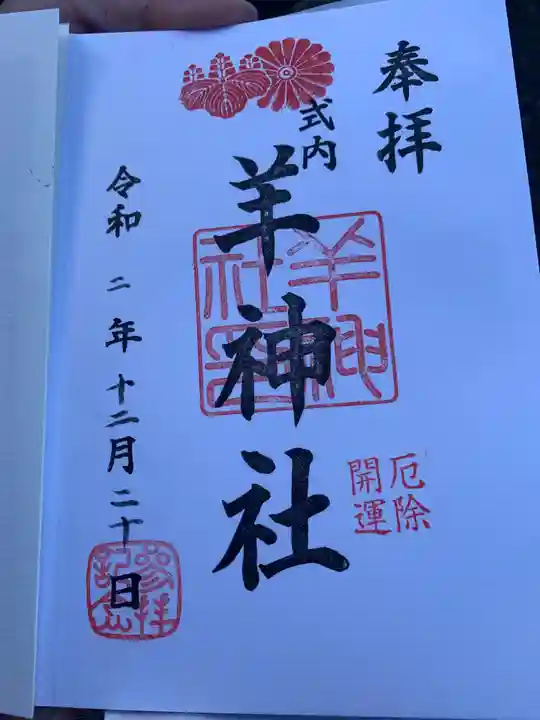 奉拝
式内
羊神社
羊神社印
厄除
開運
令和二年十二月二十日
参拝記念